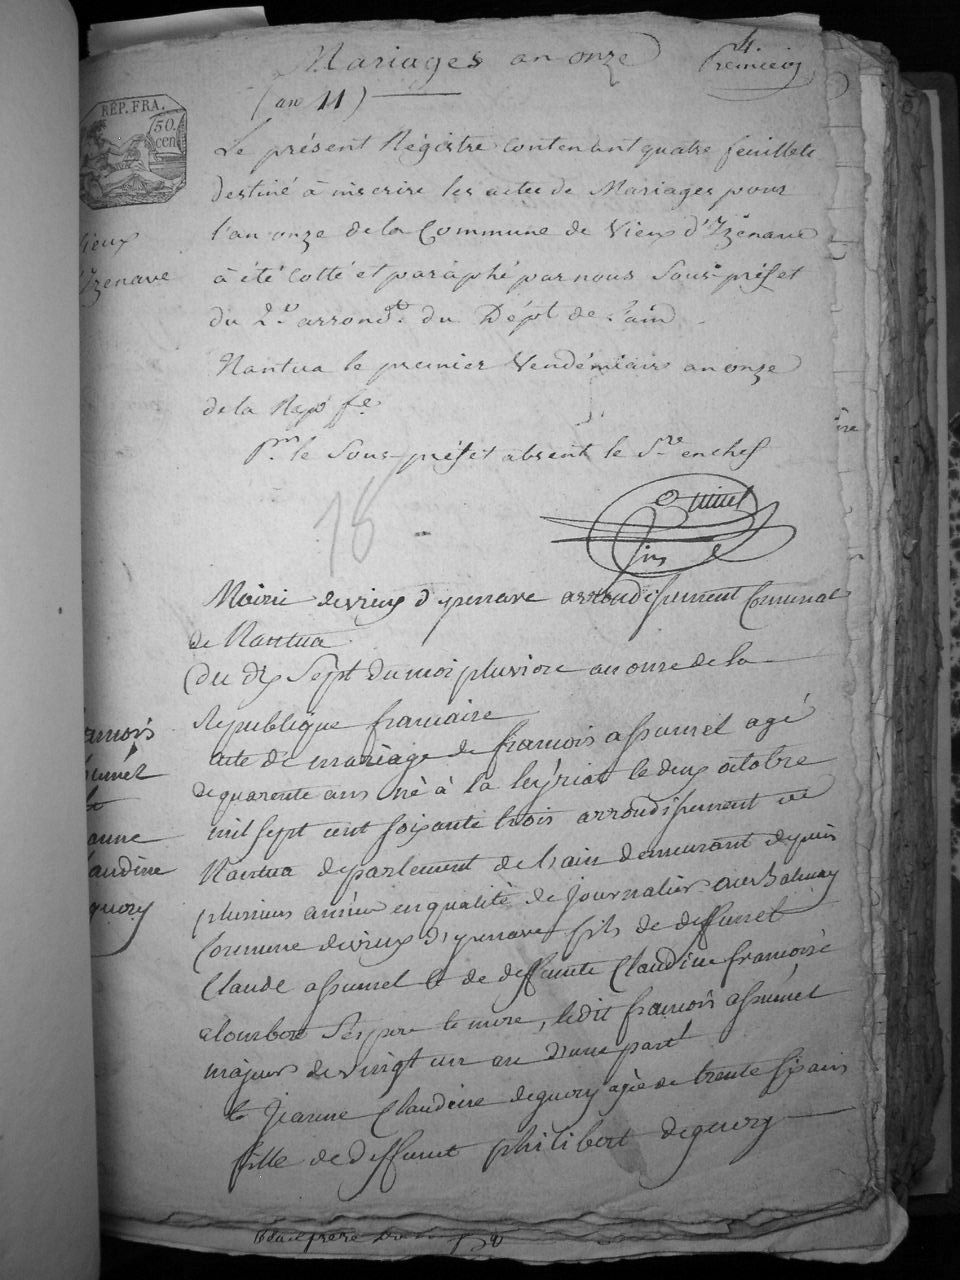 Mariages an onze
4.
premier
(an 11)
RÉP. FRA.
50.
cen
Le présent Régistre contenant quatre feuillets
destiné à inscrire les actes de Mariages pour
l'an onze de la Commune de Vieux d'Izenave
à été Cotté et paraphé par nous Sous-préfet
du 2.e arrond.t du Dépt de l'ain
Nantua le premier Vendémiaire an onze
de la Rep. fe.
Pr. le Sous-préfet absent le S.re en chef
ieux
Izenave
18
Mairie de vieux d'ysenave arrondissement Communal
de Nantua
Du dix Sept du moi pluviose an onze de la
Republique francaise
acte de mariage de francois assumel agé
de quarente ans né à la leyriat le deux octobre
mil sept cent soixante trois arrondissement de
Nantua departement de l'ain demeurant depuis
plusieurs année en qualité de journalier au Balmay
Commune de vieux d'ysenave fils de deffunct
Claude assumel et de deffunte Claudine francoise
Ses pere et mere, ledit francois assumel
majeur de vingt un an d'une part
et Jeanne Claudine deguery agée de trente six ans
fille de deffunct philibert deguery
ancois
sumel
et
anne
audine
guery